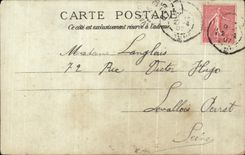 CARTE POSTALE
Ce côté est exclusivement réservé à l'adresse
Madame Langlois
72 Rue Victor Hugo
Levallois Perret
Seine